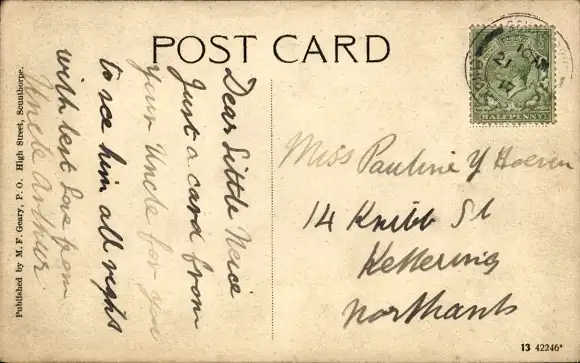 POST CARD
Dear Little Neice
Just a card from
your Uncle for you
to see him all right
with best love from
Uncle Arthur
Miss Pauline Y
14 Knibb St
Kettering
Northants
HALFPENNY
Published by M. F. Geary, P. O. High Street, Scunthorpe.
13 42246*